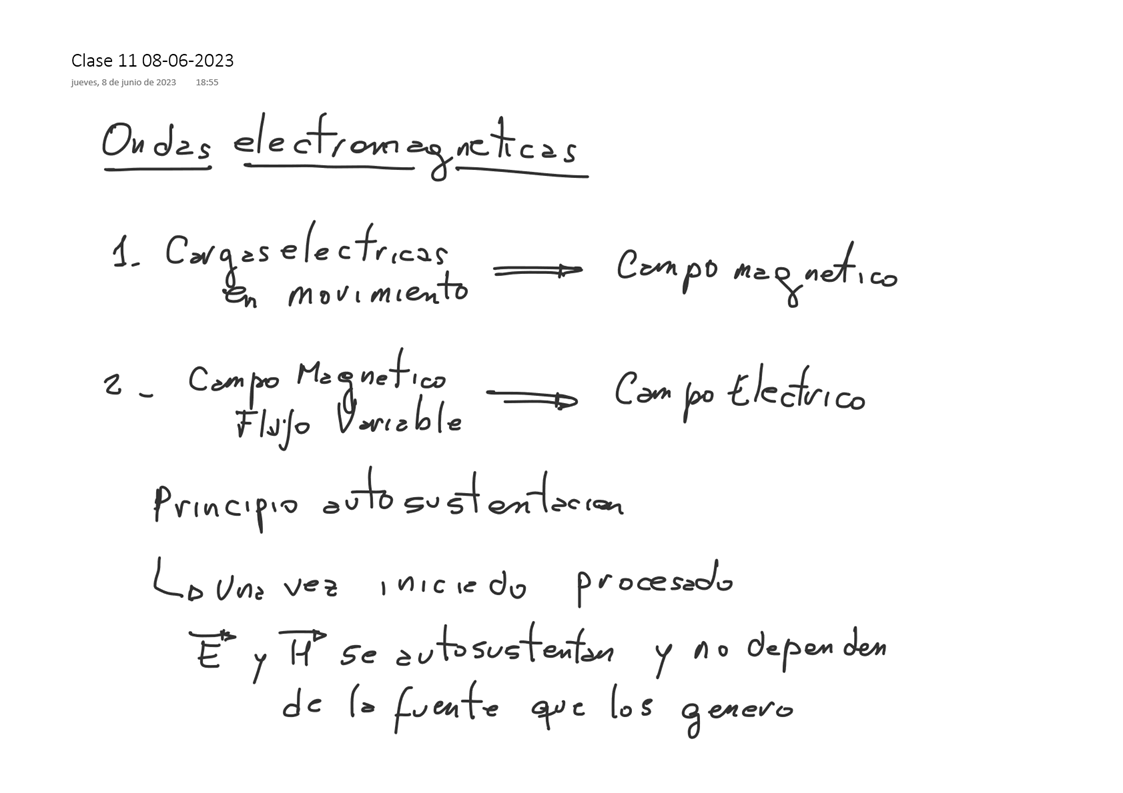 Clase 11 08-06-2023
jueves, 8 de junio de 2023 18:55
Ondas electromagneticas
1. Cargas electricas ⟹ Campo magnetico
en movimiento
2 - Campo Magnetico ⟹ Campo Electrico
Flujo Variable
Principio autosustentacion
↳ Una vez iniciado procesado
E⃗ y H⃗ se autosustentan y no dependen
de la fuente que los genero